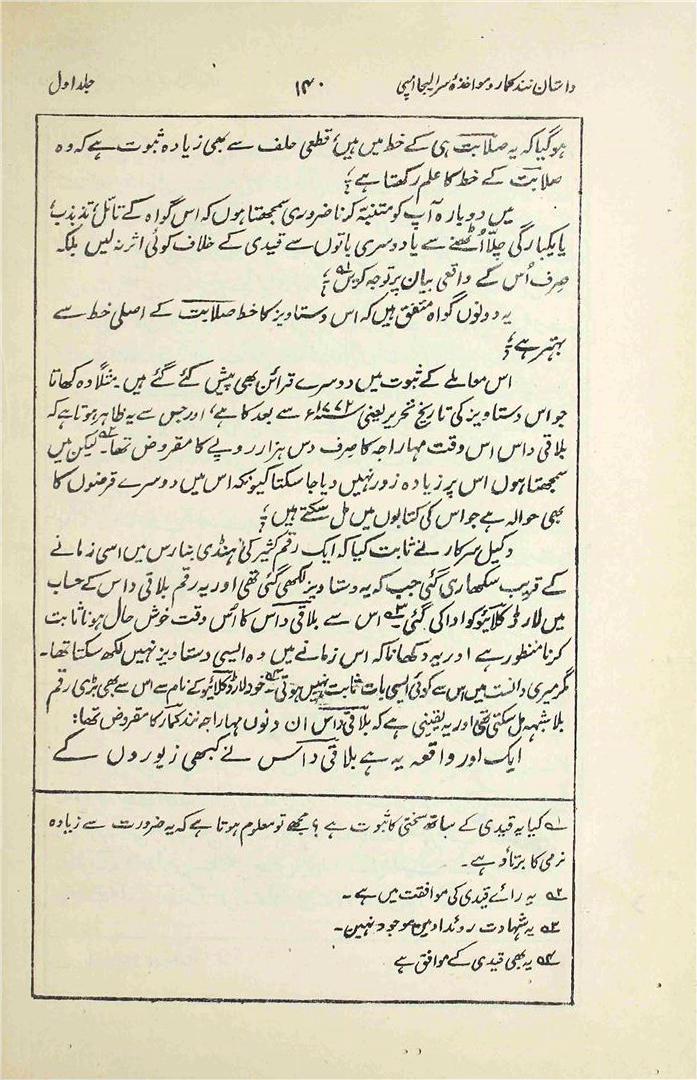 داستان نند کمار و مواخذۂ سر الیجا امپی
۱۴۰
جلد اول
ہوگیا کہ یہ صلابت ہی کے خط میں ہیں، قطعی حلف سے بھی زیادہ ثبوت ہے کہ وہ
صلابت کے خط کا علم رکھتا ہے؛
میں دوبارہ آپ کو متنبہ کرنا ضروری سمجھتا ہوں کہ اس گواہ کے تامل، تذبذب،
یا یکبارگی چلّا اُٹھنے سے یا دوسری باتوں سے قیدی کے خلاف کوئی اثر نہ لیں بلکہ
صرف اُس کے واقعی بیان پر توجہ کریں۱؎؛
یہ دونوں گواہ متفق ہیں کہ اس دستاویز کا خط صلابت کے اصلی خط سے
بہتر ہے؛
اس معاملے کے ثبوت میں دوسرے قرائن بھی پیش کئے گئے ہیں مثلاً وہ کھاتا
جو اس دستاویز کی تاریخ تحریر یعنی ۱۷۷۲ء سے بعد کا ہے، اور جس سے یہ ظاہر ہوتا ہے کہ
بلاقی داس اس وقت مہاراجہ کا صرف دس ہزار روپے کا مقروض تھا۲؎۔ لیکن میں
سمجھتا ہوں اس پر زیادہ زور نہیں دیا جا سکتا کیونکہ اس میں دوسرے قرضوں کا
بھی حوالہ ہے جو اس کی کتابوں میں مل سکتے ہیں؛
وکیل سرکار نے ثابت کیا کہ ایک رقم کثیر کی ہنڈی بنارس میں اسی زمانے
کے قریب سکھاری گئی جب کہ یہ دستاویز لکھی گئی تھی اور یہ رقم بلاقی داس کے حساب
میں لارڈ کلائیو کو ادا کی گئی۳؎ اس سے بلاقی داس کا اُس وقت خوش حال ہونا ثابت
کرنا منظور ہے اور یہ دکھانا کہ اس زمانے میں وہ ایسی دستاویز نہیں لکھ سکتا تھا۔
مگر میری دانست میں اس سے کوئی ایسی بات ثابت نہیں ہوتی۔۴؎ خود لارڈ کلائیو کے نام سے اس سے بھی بڑی رقم
بلا شبہہ مل سکتی تھی اور یہ یقینی ہے کہ بلاقی داس ان دنوں مہاراجہ نند کمار کا مقروض تھا:
ایک اور واقعہ یہ ہے بلاقی داس نے کبھی زیوروں کے
۱؎ کیا یہ قیدی کے ساتھ سختی کا ثبوت ہے؟ مجھے تو معلوم ہوتا ہے کہ یہ ضرورت سے زیادہ
نرمی کا برتاؤ ہے۔
۲؎ یہ رائے قیدی کی موافقت میں ہے۔
۳؎ یہ شہادت روئداد میں موجود نہیں۔
۴؎ یہ بھی قیدی کے موافق ہے